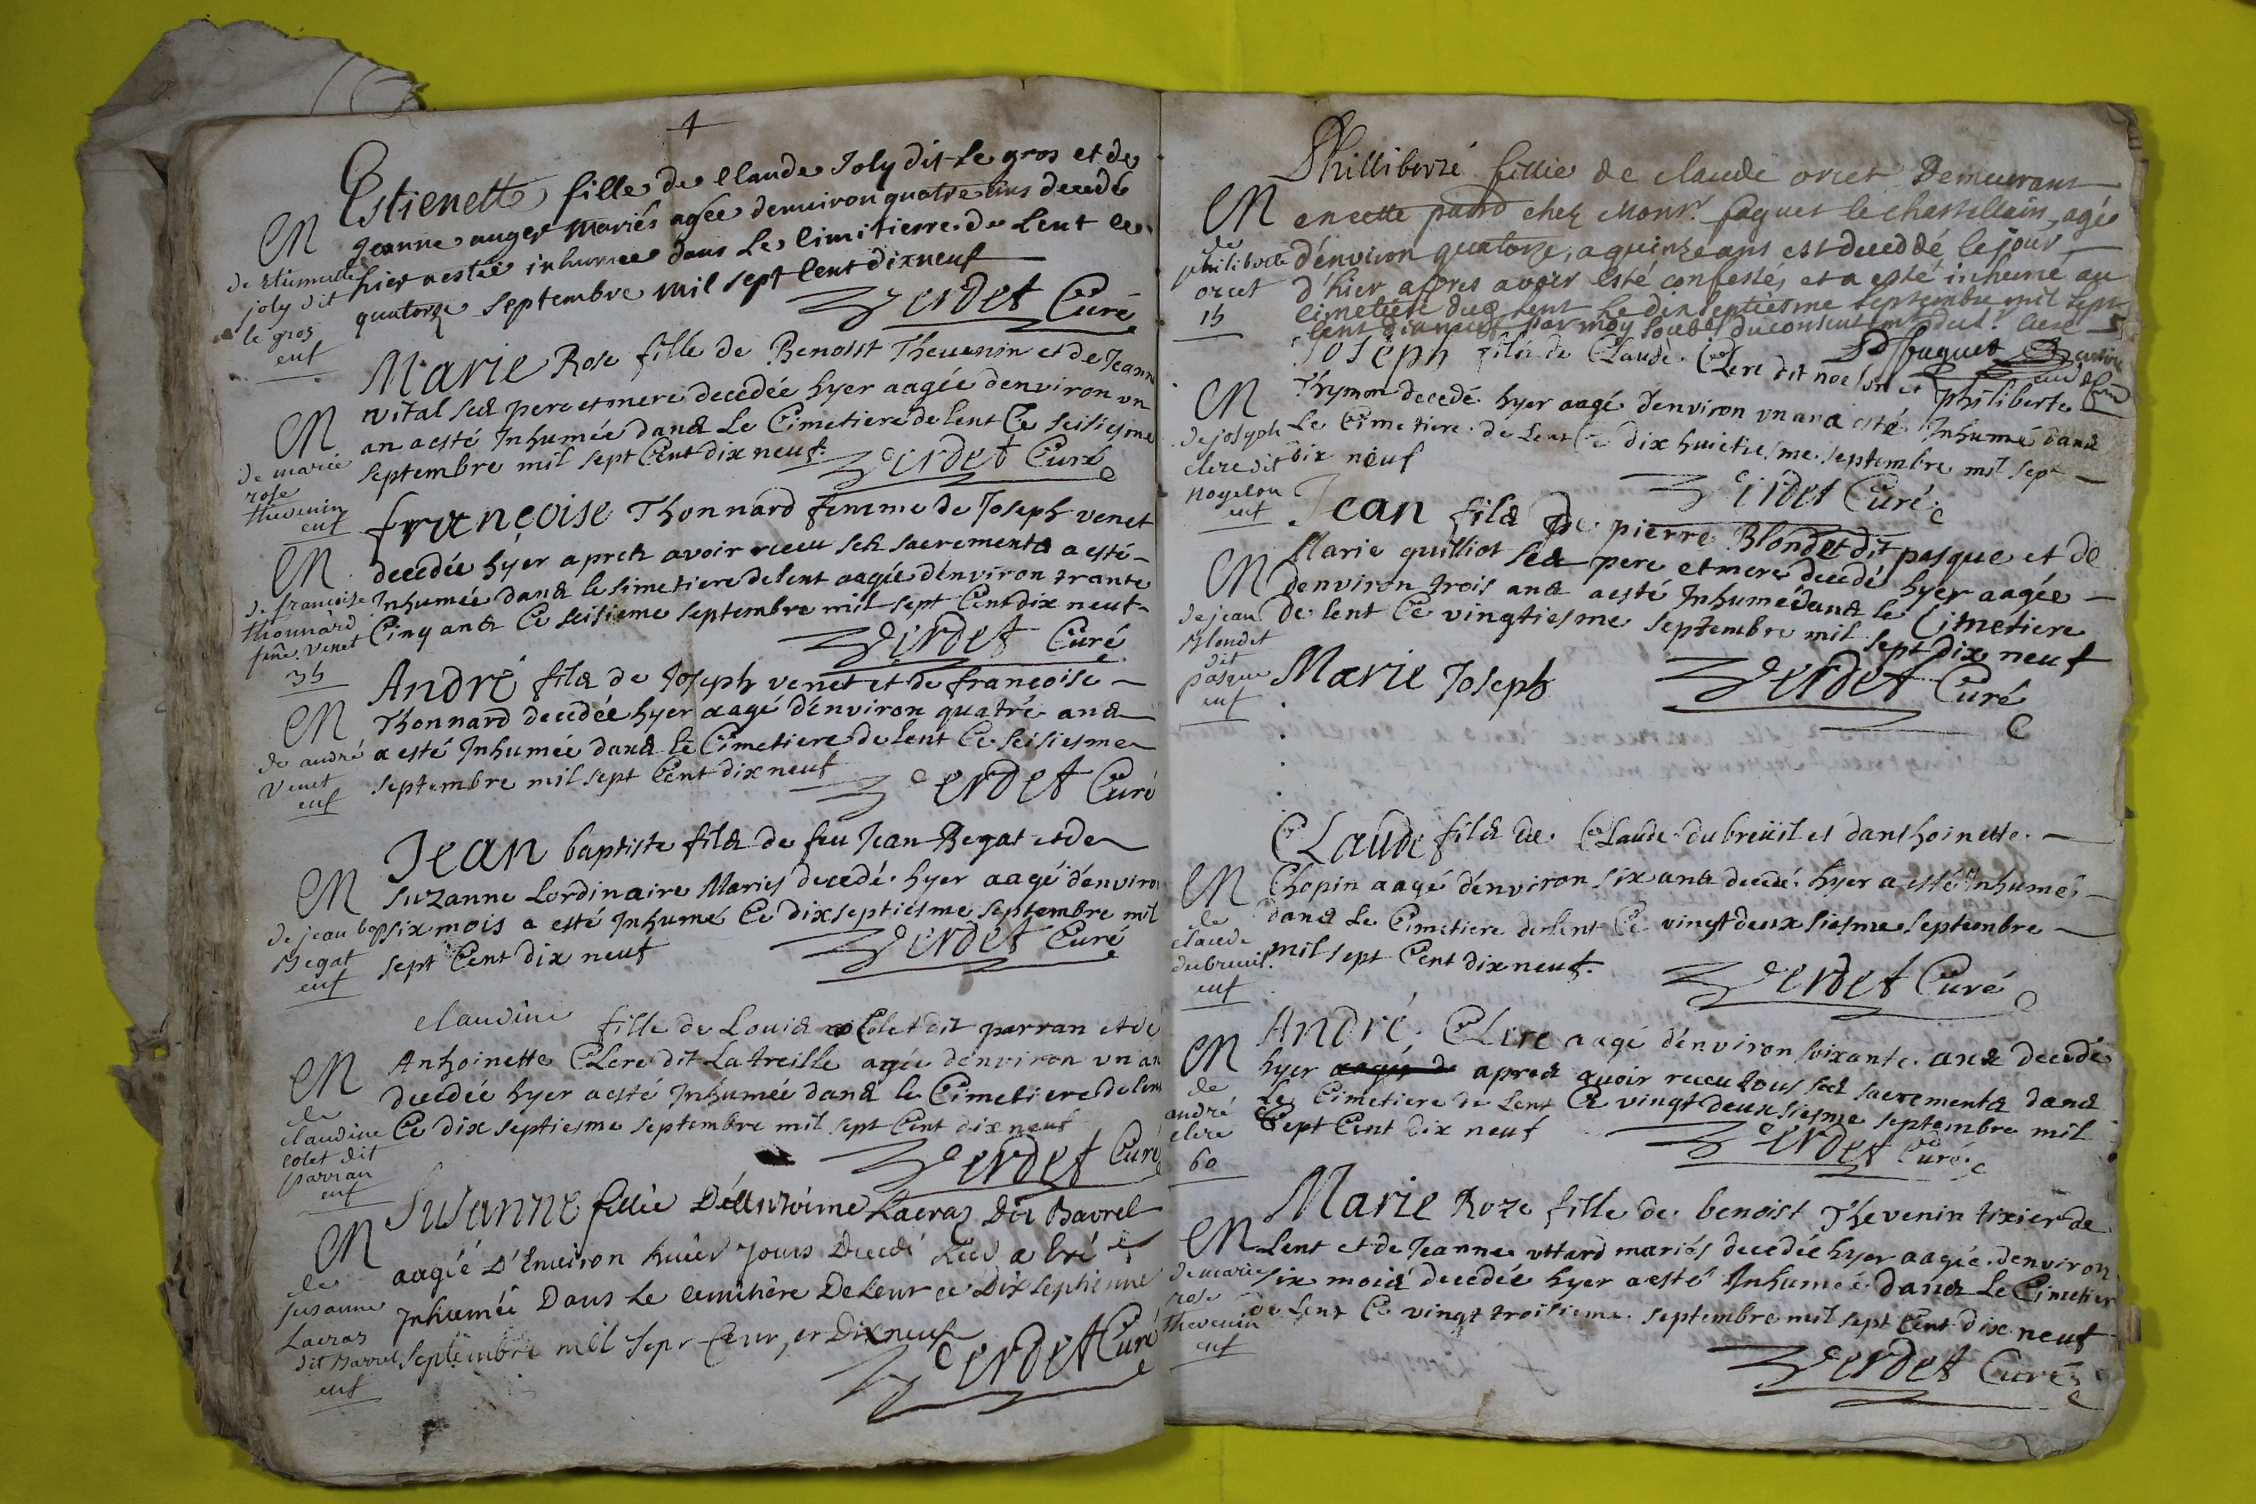 Estienette fille de Claude Joly dit le gros et de
Jeanne auger mariés agée denuiron quatre ans decedé
hier aestée inhumee dans le Cimitierre de Lent ce
quatorze septembre mil sept Cent dixneuf
Verdet Curé
M
de etiennette
joly dit
le gros
enf
Marie Rose fille de Benoist Theuenin et de Jeann
vital sed pere et mere decedée hyer aagée denviron vn
an aesté Inhumée dand le Cimetiere de lent Ce seisiesme
septembre mil sept Cent dix neuf.
Verdet Curé
M
de marie
rose
thevenin
enf
françoise Thonnard femme de Joseph venet
decedée hyer apred avoir receu sed sacrementd a esté
Inhumée dand le simetiere de lent aagée d'environ trante
Cinq and Ce seisieme septembre mil sept Cent dix neuf
Verdet Curé
M
de françoise
thonnard
feme. Venet
35
André fild de Joseph venet et de françoise
Thonnard decedée hyer aagé d'environ quatre and
a esté Inhumée dand le Cimetiere de lent Ce seisiesme
septembre mil sept Cent dix neuf
Verdet Curé
M
de andré
Venet
enf
Jean baptiste fild de feu Jean Begat et de
Suzanne Lordinaire Mariés decedé hyer aagé d'enviro
six mois a esté Inhumé Ce dixseptiesme septembre mil
sept Cent dix neuf
Verdet Curé
M
de jean bap
Begat
enf
claudine fille de Louid Colet dit parran et de
Anthoinette Clere dit Latreille agée denviron vn an
decedée hyer aesté Inhumée dand le Cimetiere de lent
Ce dix septiesme septembre mil sept Cent dix neuf
Verdet Curé
M
de
claudine
colet dit
parran
enf
Susanne fillie DeAntoine Lacraz Dit Bavrel
aagéé D'Enuiron huict Jours Decedé hier a eté
Inhumée Dans Le cemithere De Lent ce Dix septienne
septembre mil sept Cent, et Dixneuf
Verdet Curé
M
de
susanne
Lacraz
dit Barrel
enf
Philliberte fillie de claude orcet Demeurant
en cette parr chez Monsr. faguet le chastellain, agée
d'énviron quatorze, a quinze ans est deceddé le jour
d'hier apres avoir esté confessée, et a esté inhumé au
cimetiere dud Lent Le dix septiesme septembre mil sept
cent dixneuf par moy soubs du consentemt dud. Curé
faguet
M
de
philiberte
orcet
15
Joseph fild de Claude Clere dit noeson et philiberte
Thymon decedé hyer aagé d'environ vn and a esté Inhumé dand
Le Cimetiere de Lent Ce dix huictiesme septembre mil sept
dix neuf
Verdet Curé
M
de joseph
clere dit
nogelon
enf
Jean fild De pierre Blondet dit pasque et de
Marie guilliot sed pere et mere decedé hyer aagée
denviron trois and aesté Inhumé dand le Cimetiere
de lent Ce vingtiesme septembre mil sept dix neuf
Verdet Curé
M
de jean
Blondet
dit
pasque
enf
Marie Joseph
Claude fild de Claude dubreüil et danthoinette
Chopin aagé d'environ six and decedé hyer a esté Inhumé
dand le Cimetiere de lent Ce vingt deux siesme septembre
mil sept Cent dix neuf.
Verdet Curé
M
de
claude
dubreuil.
enf
André Clere aagé d'environ soixante and decedé
hyer apred avoir receu tous sed sacrementd dand
Le Cimetiere de Lent Ce vingt deux siesme septembre mil
Sept Cent dix neuf
Verdet Curé
M
de
andré
clere
60
Marie Roze fille de benoist Thevenin tixier de
Lent et de Jeanne vittard mariés decedée hyer aagée denviron
six moid decedée hyer aesté Inhumée dand Le Cimetier
de Lent Ce vingt troisieme septembre mil sept Cent dix neuf
Verdet Curé
M
de marie
rose
Thevenin
enf